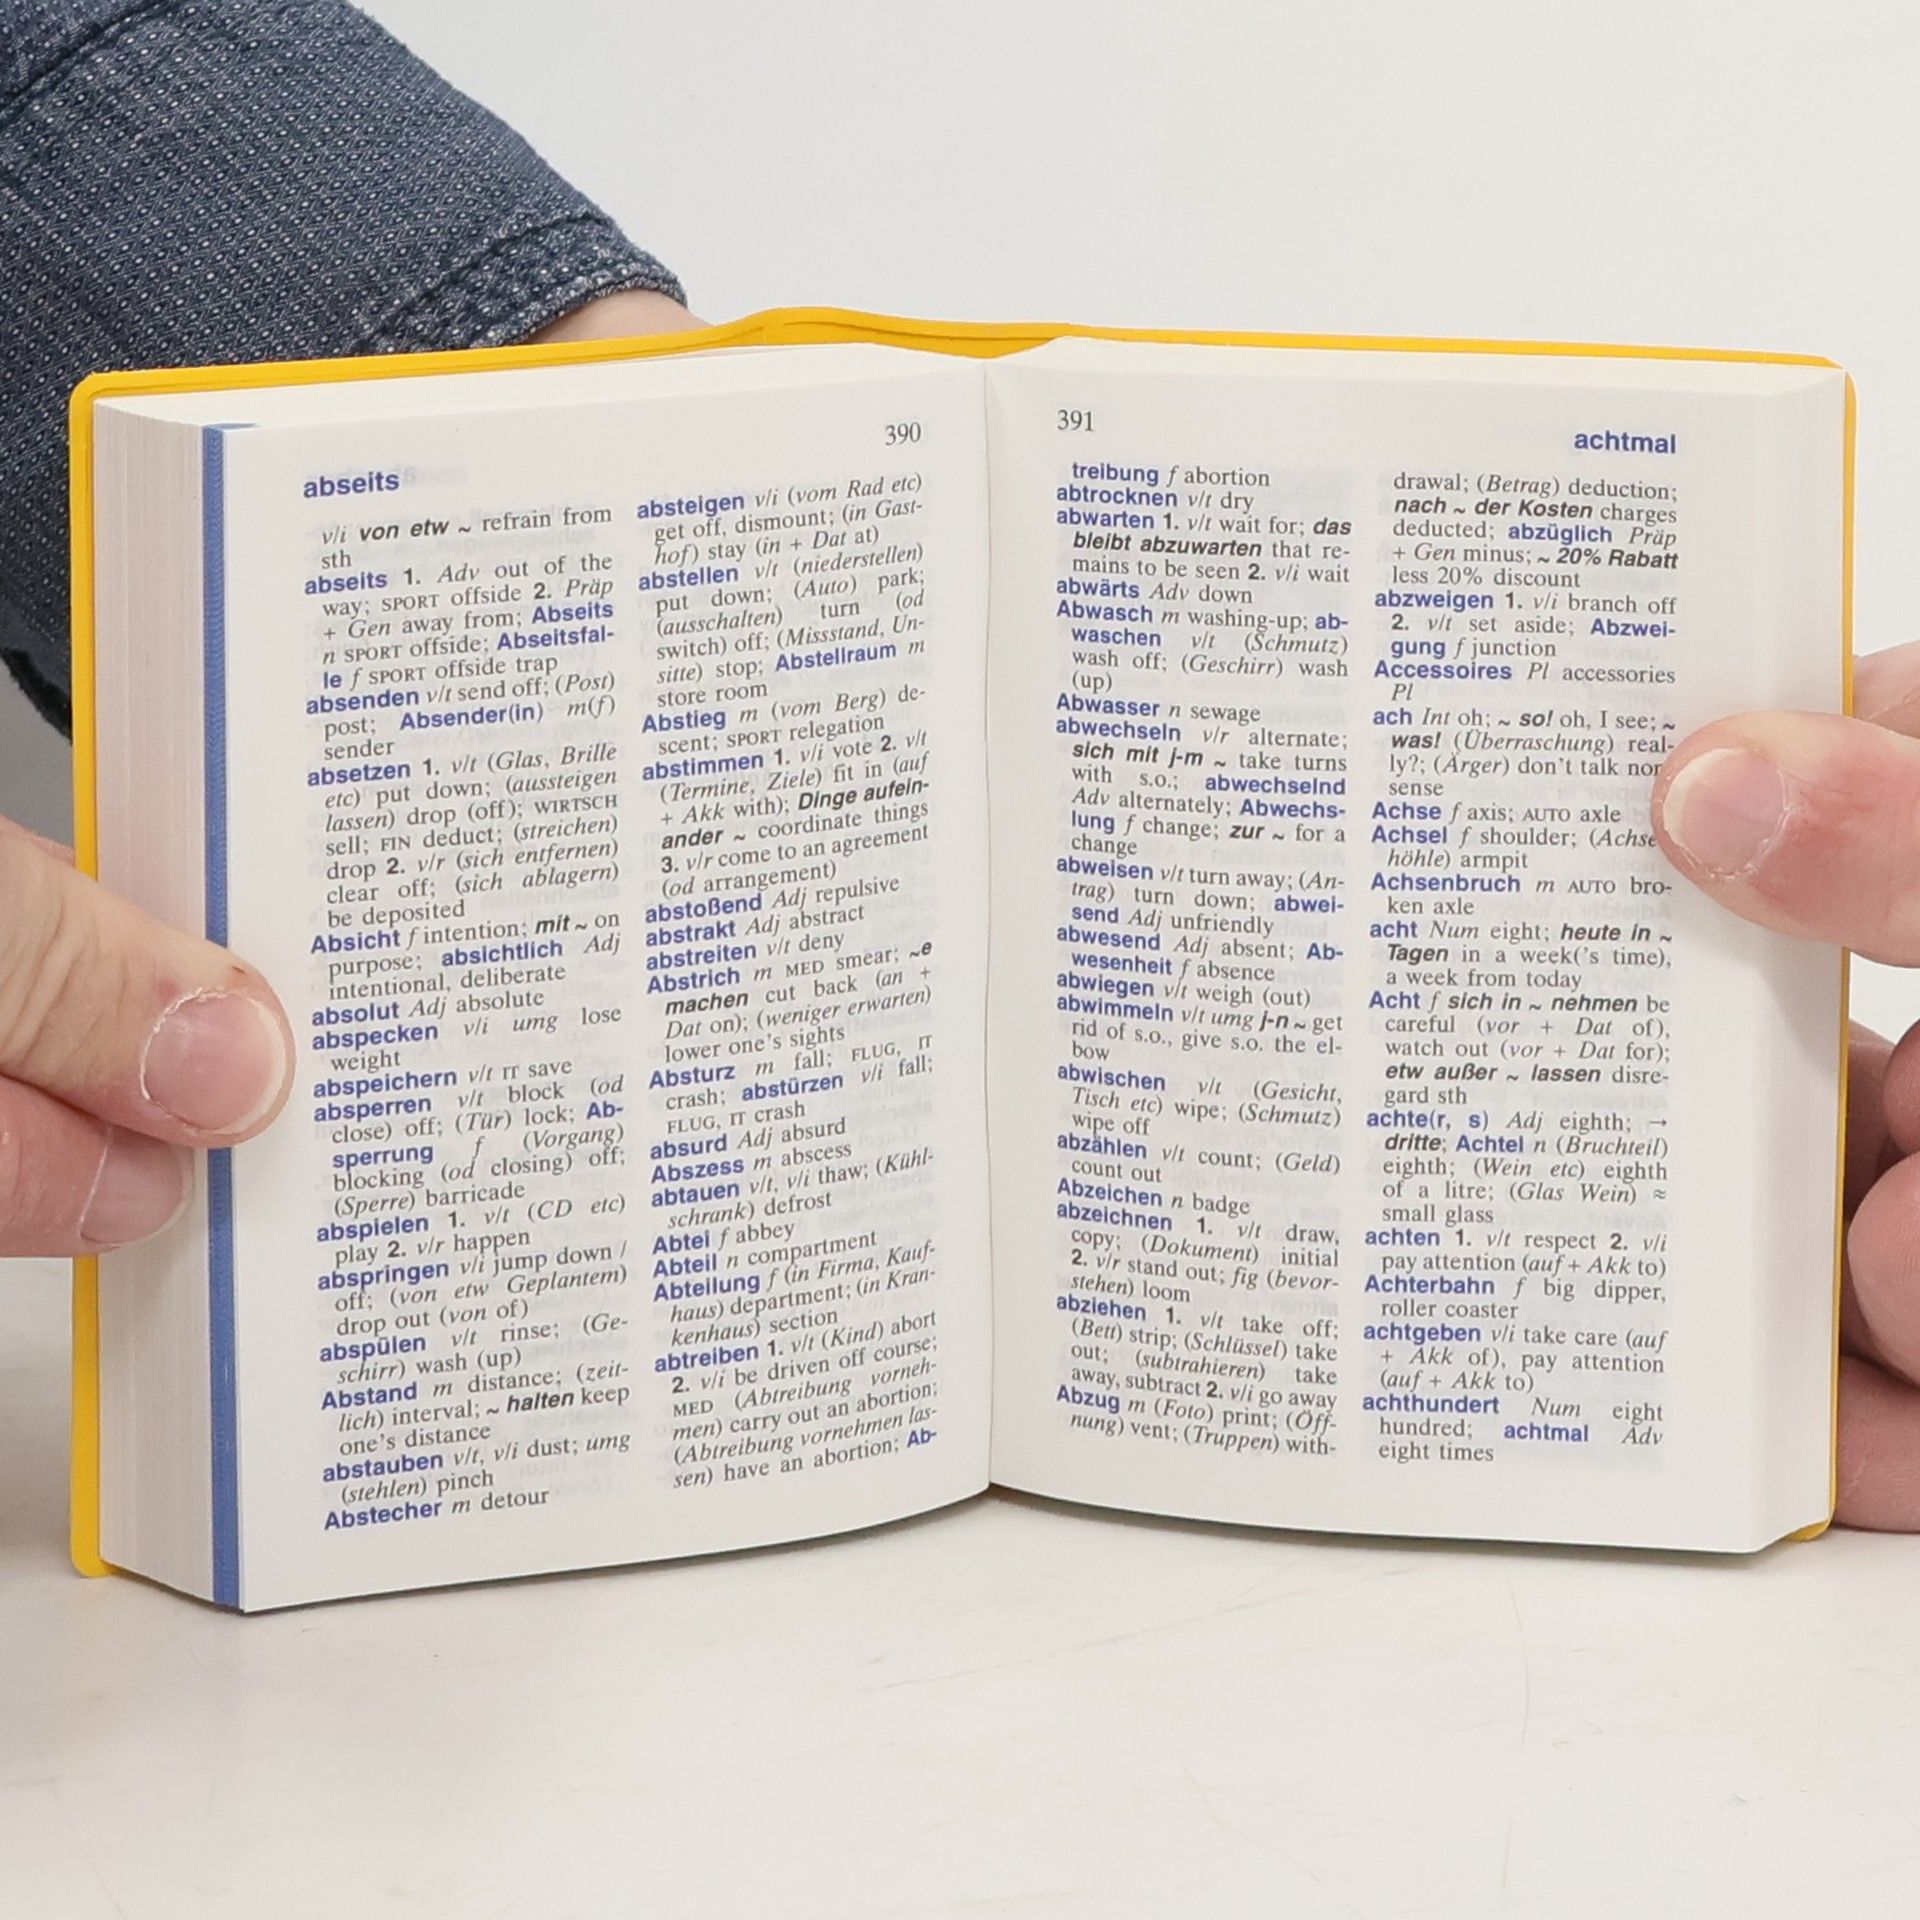 390
abseits
v/i von etw ~ refrain from
sth
abseits 1. Adv out of the
way; SPORT offside 2. Präp
+ Gen away from; Abseits
n SPORT offside; Abseitsfal-
le f SPORT offside trap
absenden v/t send off; (Post)
post; Absender(in) m(f)
sender
absetzen 1. v/t (Glas, Brille
etc) put down; (aussteigen
lassen) drop (off); WIRTSCH
sell; FIN deduct; (streichen)
drop 2. v/r (sich entfernen)
clear off; (sich ablagern)
be deposited
Absicht f intention; mit ~ on
purpose; absichtlich Adj
intentional, deliberate
absolut Adj absolute
abspecken v/i umg lose
weight
abspeichern v/t IT save
absperren v/t block (od
close) off; (Tür) lock; Ab-
sperrung f (Vorgang)
blocking (od closing) off;
(Sperre) barricade
abspielen 1. v/t (CD etc)
play 2. v/r happen
abspringen v/i jump down /
off; (von etw Geplantem)
drop out (von of)
abspülen v/t rinse; (Ge-
schirr) wash (up)
Abstand m distance; (zeit-
lich) interval; ~ halten keep
one's distance
abstauben v/t, v/i dust; umg
(stehlen) pinch
Abstecher m detour
absteigen v/i (vom Rad etc)
get off, dismount; (in Gast-
hof) stay (in + Dat at)
abstellen v/t (niederstellen)
put down; (Auto) park;
(ausschalten) turn (od
switch) off; (Missstand, Un-
sitte) stop; Abstellraum m
store room
Abstieg m (vom Berg) de-
scent; SPORT relegation
abstimmen 1. v/i vote 2. v/t
(Termine, Ziele) fit in (auf
+ Akk with); Dinge aufein-
ander ~ coordinate things
3. v/r come to an agreement
(od arrangement)
abstoßend Adj repulsive
abstrakt Adj abstract
abstreiten v/t deny
Abstrich m MED smear; ~e
machen cut back (an +
Dat on); (weniger erwarten)
lower one's sights
Absturz m fall; FLUG, IT
crash; abstürzen v/i fall;
FLUG, IT crash
absurd Adj absurd
Abszess m abscess
abtauen v/t, v/i thaw; (Kühl-
schrank) defrost
Abtei f abbey
Abteil n compartment
Abteilung f (in Firma, Kauf-
haus) department; (in Kran-
kenhaus) section
abtreiben 1. v/t (Kind) abort
2. v/i be driven off course;
MED (Abtreibung vorneh-
men) carry out an abortion;
(Abtreibung vornehmen las-
sen) have an abortion; Ab-
391
achtmal
treibung f abortion
abtrocknen v/t dry
abwarten 1. v/t wait for; das
bleibt abzuwarten that re-
mains to be seen 2. v/i wait
abwärts Adv down
Abwasch m washing-up; ab-
waschen v/t (Schmutz)
wash off; (Geschirr) wash
(up)
Abwasser n sewage
abwechseln v/r alternate;
sich mit j-m ~ take turns
with s.o.; abwechselnd
Adv alternately; Abwechs-
lung f change; zur ~ for a
change
abweisen v/t turn away; (An-
trag) turn down; abwei-
send Adj unfriendly
abwesend Adj absent; Ab-
wesenheit f absence
abwiegen v/t weigh (out)
abwimmeln v/t umg j-n ~ get
rid of s.o., give s.o. the el-
bow
abwischen v/t (Gesicht,
Tisch etc) wipe; (Schmutz)
wipe off
abzählen v/t count; (Geld)
count out
Abzeichen n badge
abzeichnen 1. v/t draw,
copy; (Dokument) initial
2. v/r stand out; fig (bevor-
stehen) loom
abziehen 1. v/t take off;
(Bett) strip; (Schlüssel) take
out; (subtrahieren) take
away, subtract 2. v/i go away
Abzug m (Foto) print; (Öff-
nung) vent; (Truppen) with-
drawal; (Betrag) deduction;
nach ~ der Kosten charges
deducted; abzüglich Präp
+ Gen minus; ~ 20% Rabatt
less 20% discount
abzweigen 1. v/i branch off
2. v/t set aside; Abzwei-
gung f junction
Accessoires Pl accessories
Pl
ach Int oh; ~ so! oh, I see; ~
was! (Überraschung) real-
ly?; (Ärger) don't talk non
sense
Achse f axis; AUTO axle
Achsel f shoulder; (Achse
höhle) armpit
Achsenbruch m AUTO bro-
ken axle
acht Num eight; heute in ~
Tagen in a week('s time),
a week from today
Acht f sich in ~ nehmen be
careful (vor + Dat of),
watch out (vor + Dat for);
etw außer ~ lassen disre-
gard sth
achte(r, s) Adj eighth; →
dritte; Achtel n (Bruchteil)
eighth; (Wein etc) eighth
of a litre; (Glas Wein) ≈
small glass
achten 1. v/t respect 2. v/i
pay attention (auf + Akk to)
Achterbahn f big dipper,
roller coaster
achtgeben v/i take care (auf
+ Akk of), pay attention
(auf + Akk to)
achthundert Num eight
hundred; achtmal Adv
eight times